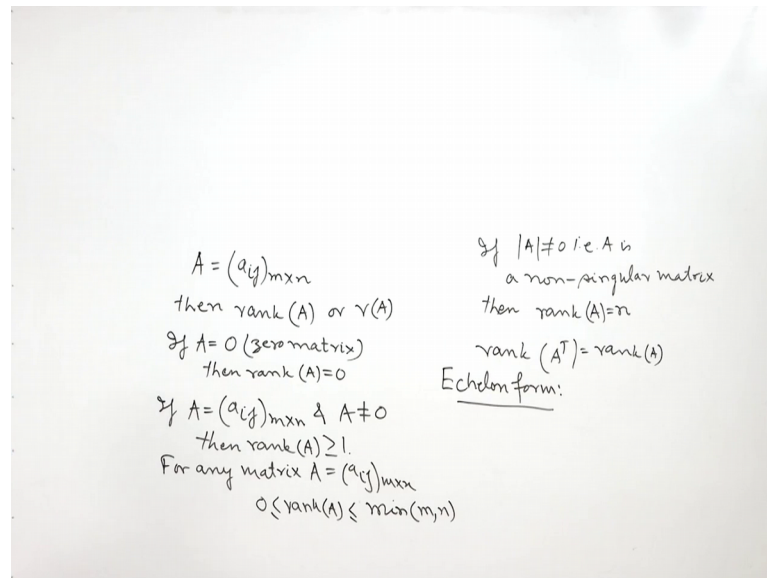 A = (aij)m×n
then rank (A) or r(A)
If A = 0 (zero matrix)
then rank (A)=0
If A = (aij)m×n & A ≠ 0
then rank (A) ≥ 1.
For any matrix A = (aij)m×n
0 ≤ rank(A) ≤ min(m,n)
If |A| ≠ 0 i.e. A is
a non-singular matrix
then rank (A)=n
rank (Aᵀ) = rank (A)
Echelon form: